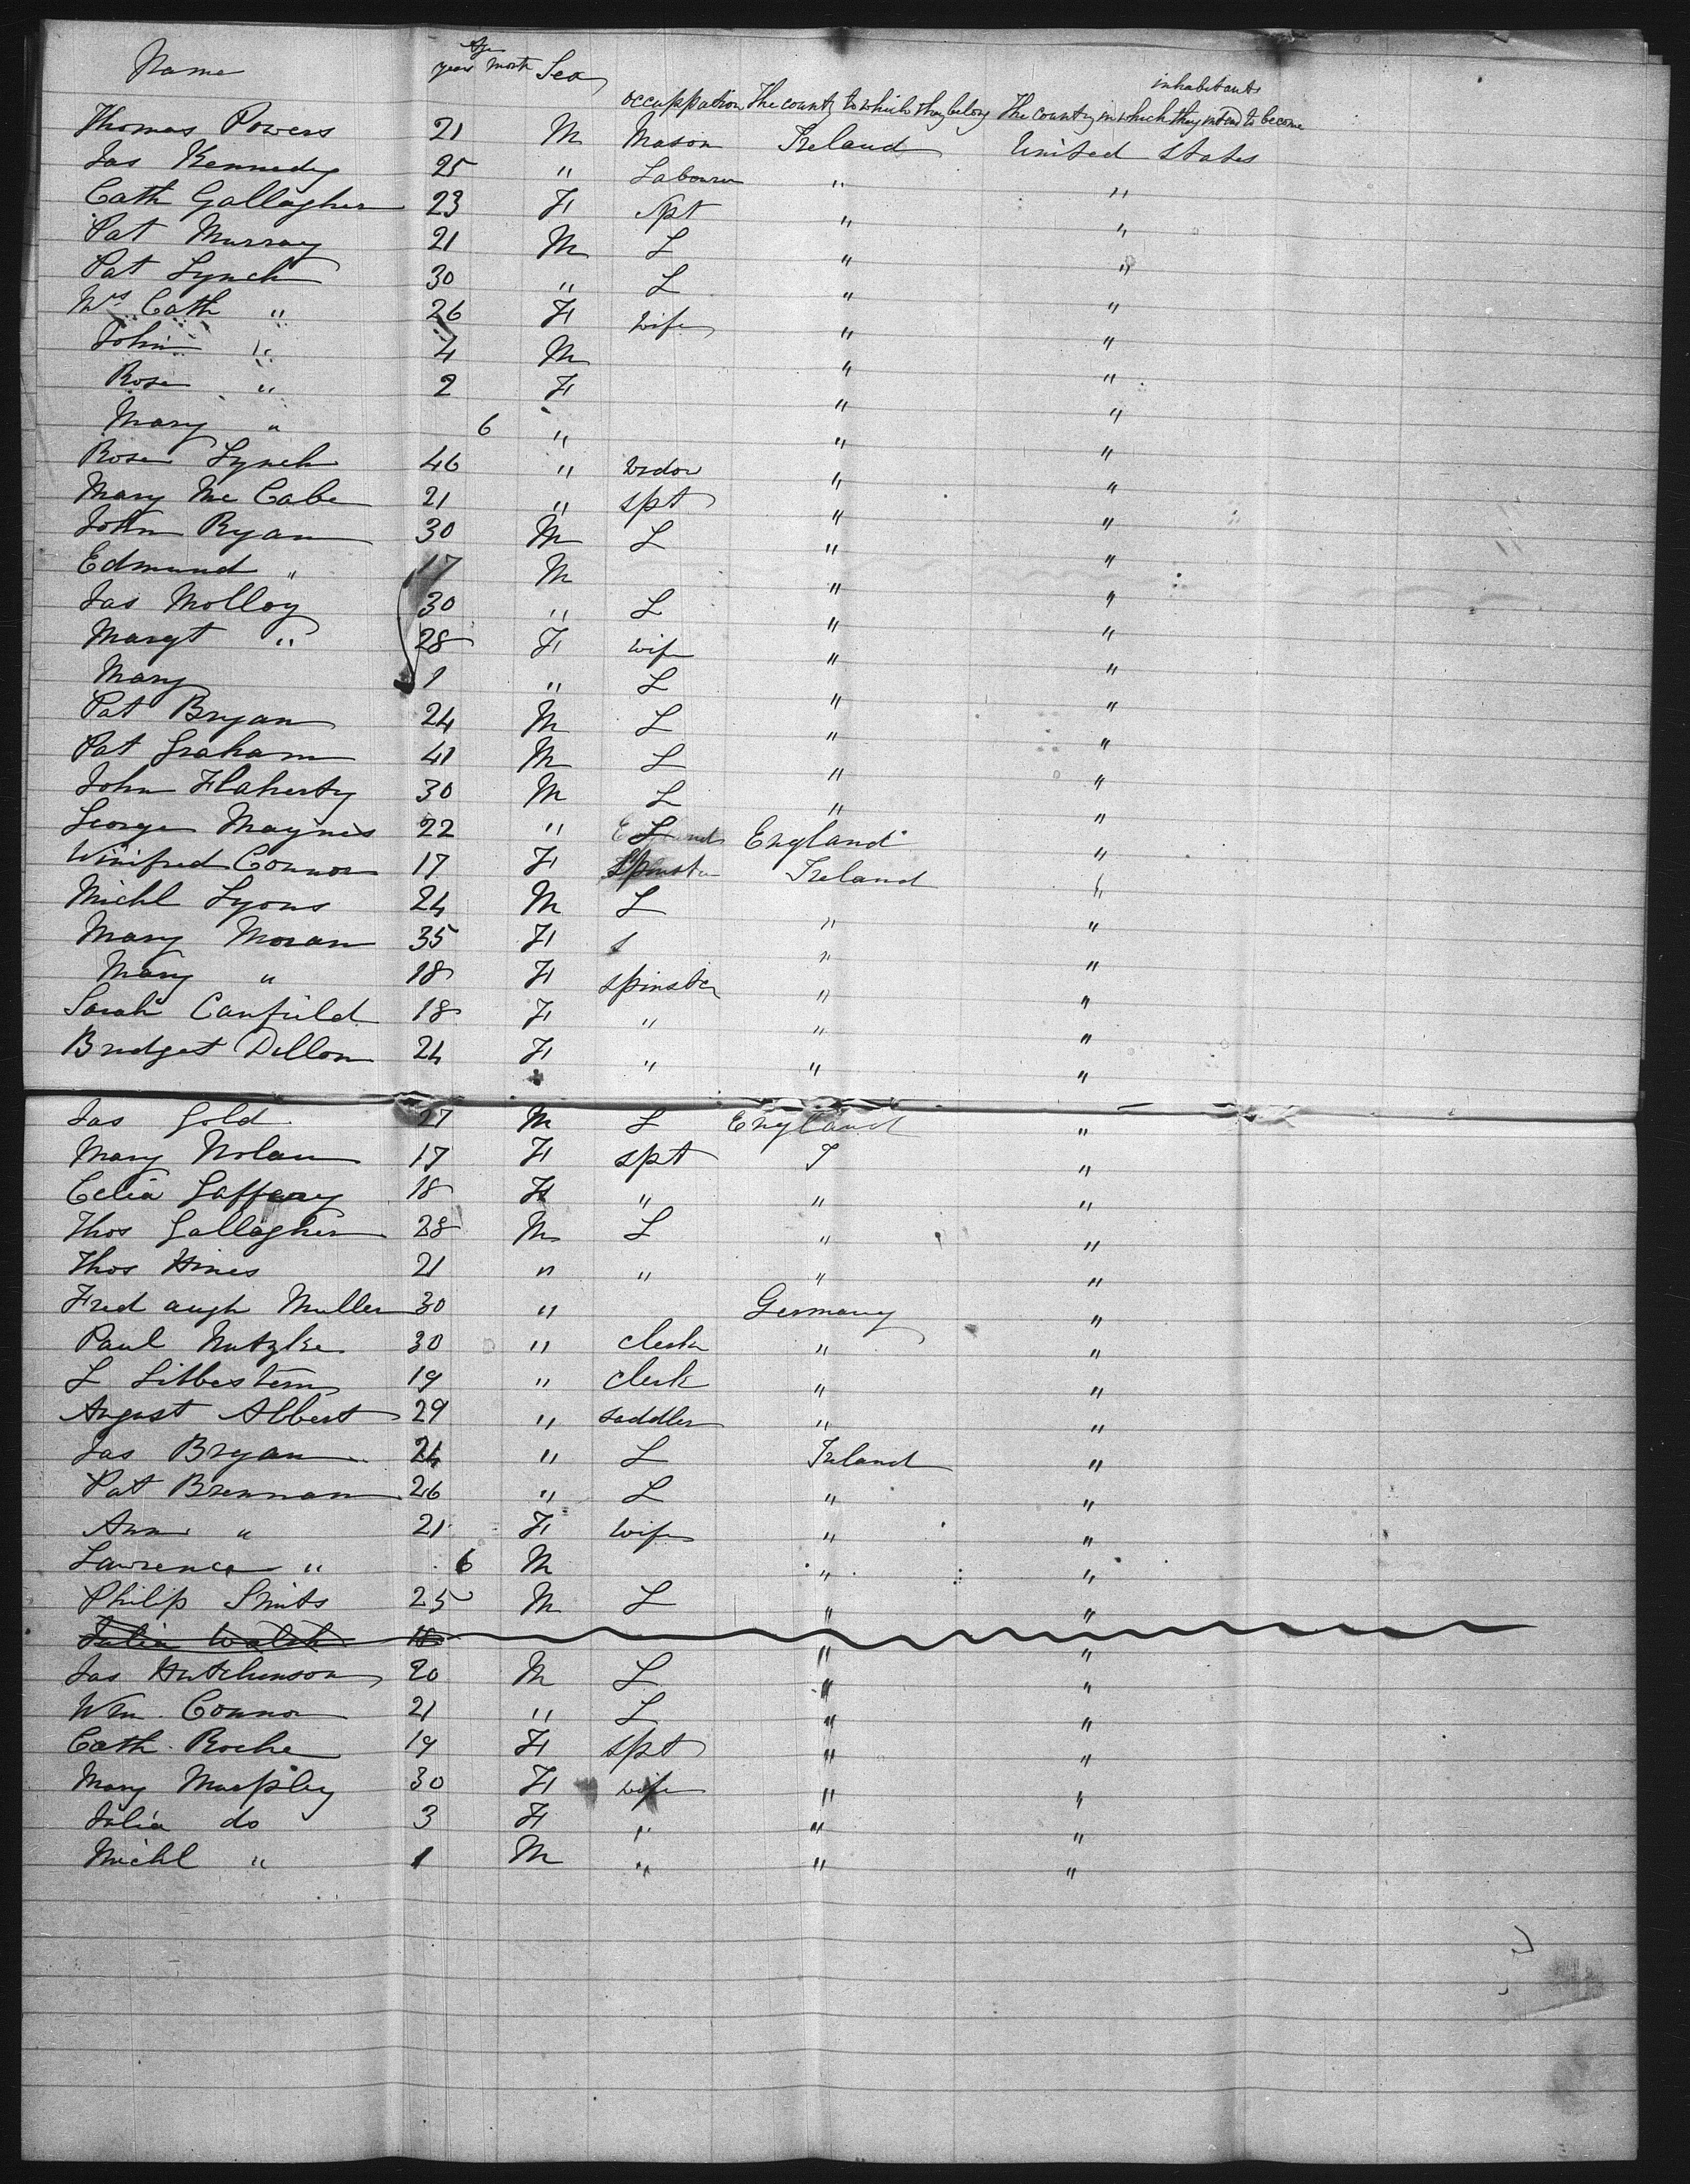 Name Age years Month Sex occuppation The country to which they belong The country in which they intend to become inhabitants
Thomas Powers 21 M Mason Ireland United States
Jas Kennedy 25 " Labourer " "
Cath Gallagher 23 F Spt " "
Pat Murray 21 M L " "
Pat Lynch 30 " L " "
Mrs Cath " 26 F wife " "
John " 4 M " "
Rose " 2 F " "
Mary " 6 " " "
Rose Lynch 46 " widow " "
Mary Mc Cabe 21 " spt " "
John Ryan 30 M L " "
Edmund " 17 M " "
Jas Molloy 30 " L " "
Margt " 28 F wife " "
Mary 1 " L " "
Pat Bryan 24 M L " "
Pat Graham 41 M L " "
John Flaherty 30 M L " "
George Maynes 22 " L England "
Winifred Connor 17 F Spinster Ireland "
Michl Lyons 24 M L " "
Mary Moran 35 F s " "
Mary " 18 F spinster " "
Sarah Canfield 18 F " " "
Bridget Dillon 24 F " " "
Jas Gold 27 M L England "
Mary Nolan 17 F spt I "
Celia Laffeey 18 F " " "
Thos Gallagher 28 M L " "
Thos Hines 21 " " " "
Fred augh Muller 30 " Germany "
Paul Nutzke 30 " clerk " "
L Silbestern 19 " clerk " "
August Albert 29 " saddler " "
Jas Bryan 24 " L Ireland "
Pat Brennan 26 " L " "
Ann " 21 F wife " "
Lawrence " 6 M " "
Philip Smits 25 M L " "
Julia Walsh 18 " "
Jas Hutchinson 20 M L " "
Wm. Connor 21 " L " "
Cath. Roche 19 F spt " "
Mary Murphy 30 F wife " "
Julia do 3 F " " "
Michl " 1 M " " "